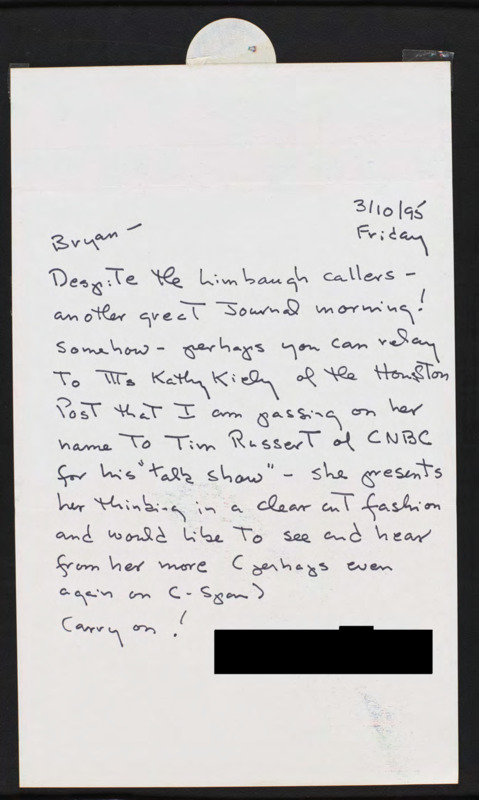 3/10/95
Friday
Bryan -
Despite the Limbaugh callers -
another great Journal morning!
Somehow - perhaps you can relay
To Ms Kathy Kiely of the Houston
Post that I am passing on her
name To Tim Russert of CNBC
for his "talk show" - she presents
her thinking in a clear cut fashion
and would like to see and hear
from her more (perhaps even
again on C-Span)
Carry on!